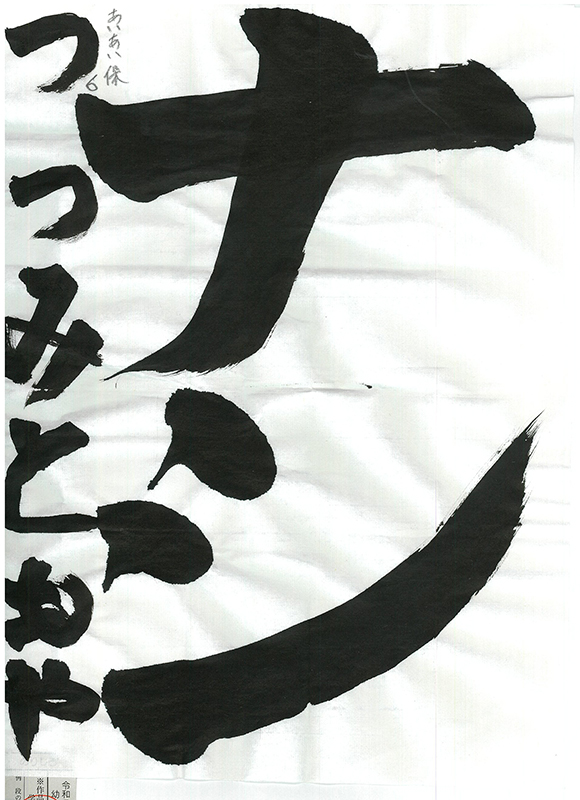 ナシ
あいあい保
6
つつみとおや
令和
幼
※作品
段の